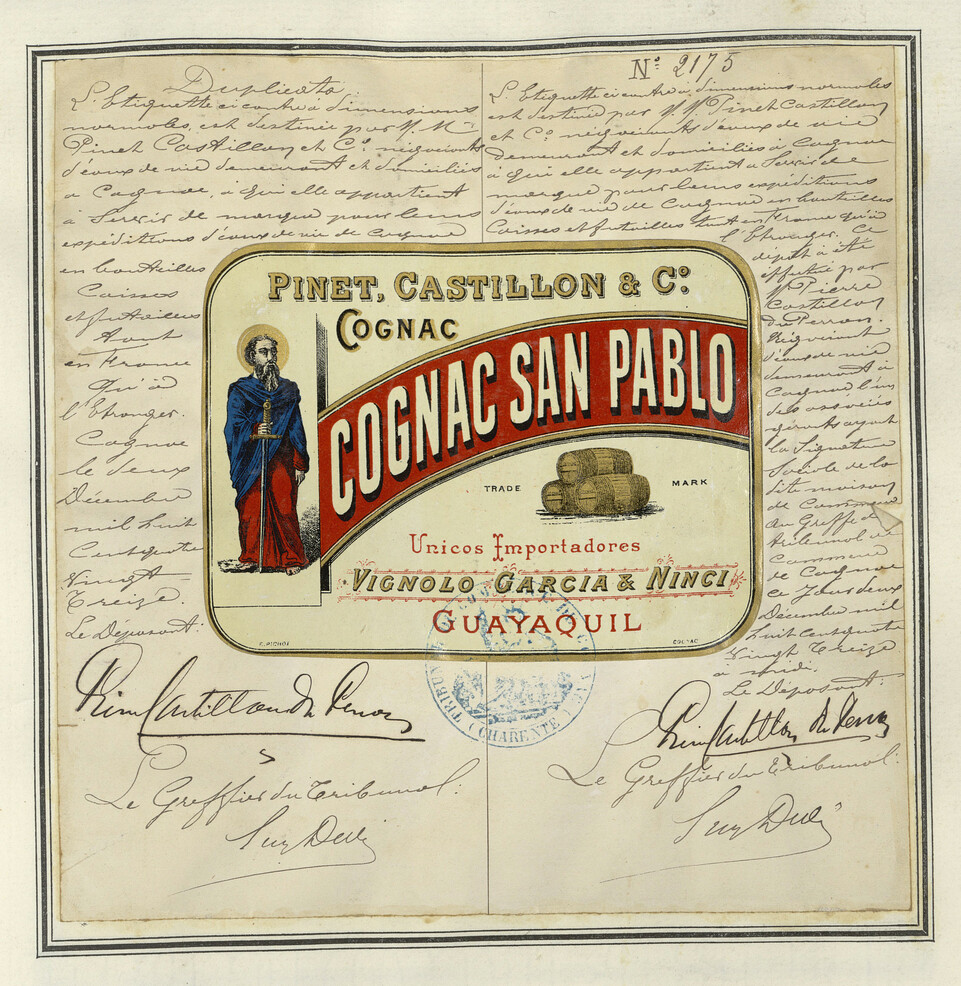 Duplicata.
L'Etiquette ci contre à dimensions
normales, est destinée par M. M.
Pinet Castillon et Cº. négociants
d'eaux de vie demeurant et domiciliés
a Cognac, à qui elle appartient
à Servir de marque pour leurs
expéditions d'eaux de vie de Cognac
en bouteilles
Caisses
et futailles
tant
en France
qu'à
l'Etranger.
Cognac
le deux
Décembre
mil huit
Cent quatre
Vingt
Treize.
Le Déposant:
Le Greffier du Tribunal:
Nº 2175
L'Etiquette ci contre à dimensions normales
est destinée par M. M. Pinet Castillon
et Cº. négociants d'eaux de vie
demeurant et domiciliés à Cognac
à qui elle appartient a Servir de
marque pour leurs expéditions
d'eaux de vie de Cognac en bouteilles
Caisses et futailles tant en France qu'à
l'Etranger. Ce
dépôt a été
effectué par
Mr Pierre
Castillon
du Perron.
Négociant
d'eaux de vie
demeurant à
Cognac l'un
des associés
gérants ayant
la Signature
Sociale de la
dite maison
de Commerce
au Greffe du
tribunal de
Commerce
de Cognac
ce Jour deux
Décembre mil
huit cent quatre
Vingt Treize
a midi.
Le Déposant:
Le Greffier du Tribunal:
PINET, CASTILLON & Cº.
COGNAC
COGNAC SAN PABLO
TRADE MARK
Unicos Importadores
VIGNOLO GARCIA & NINCI
GUAYAQUIL
COGNAC
TRIBUNAL
(CHARENTE)